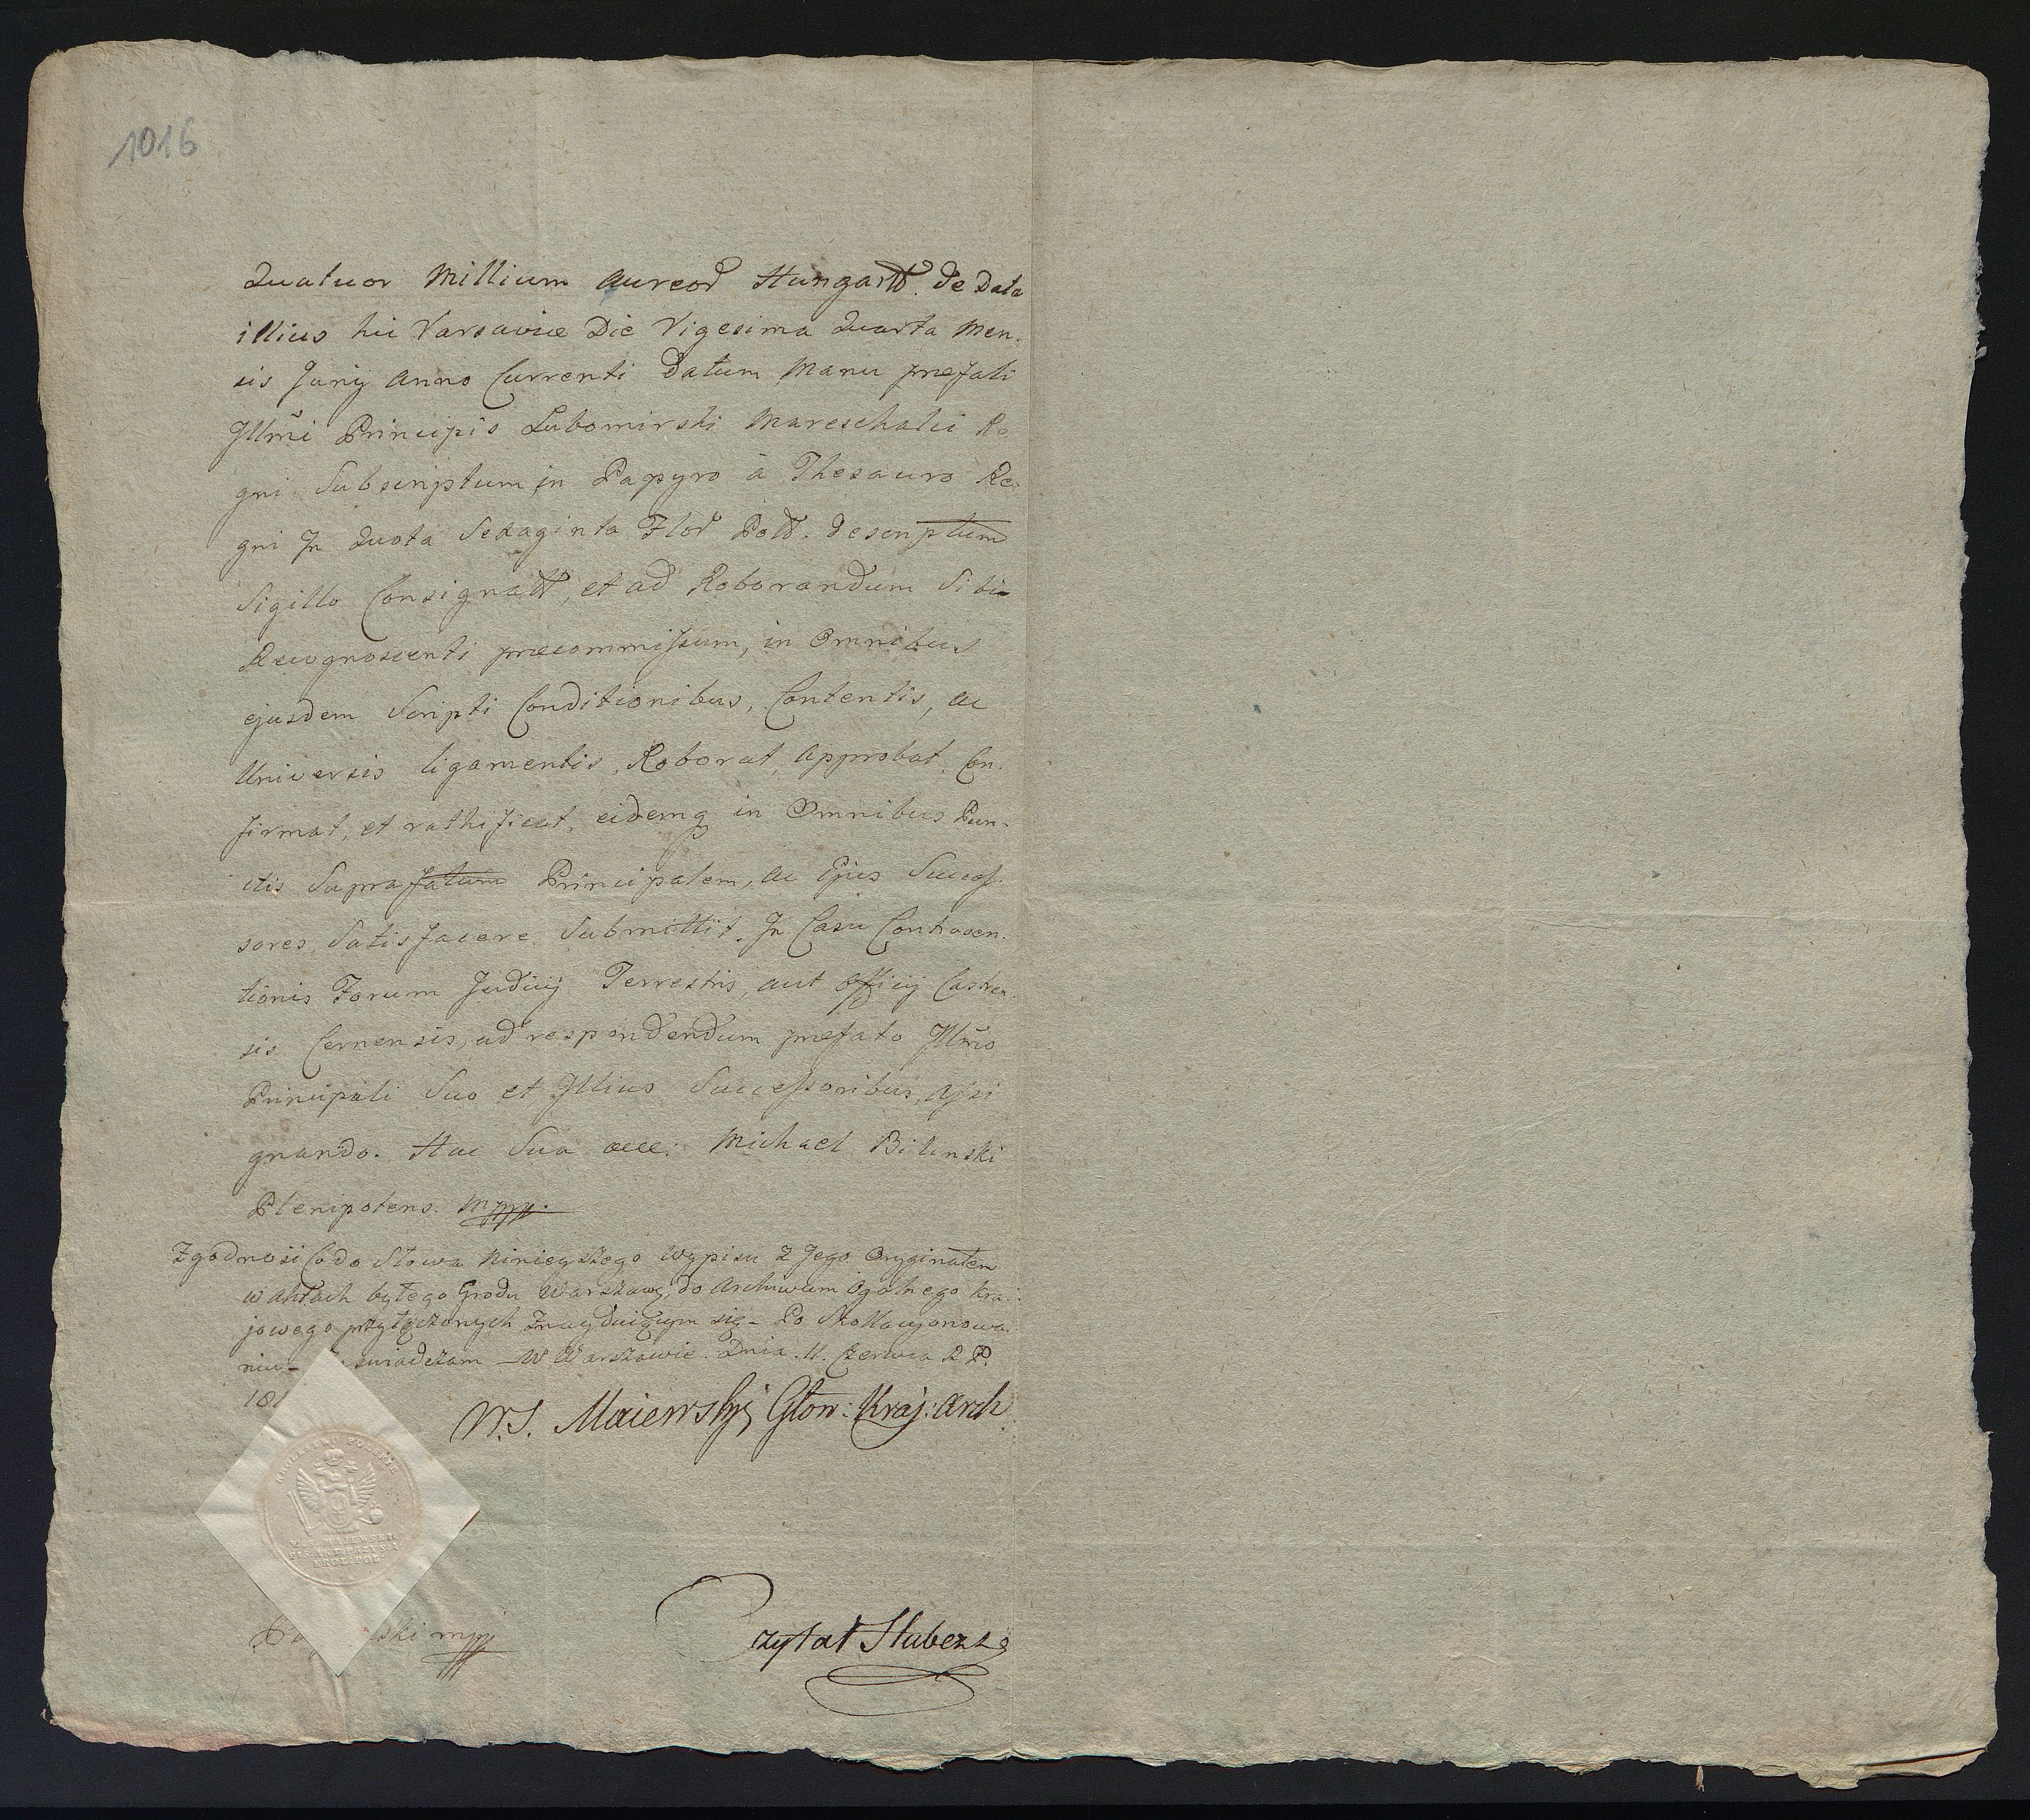 1016
Quatuor Millium Aureor Hungartt. de Data
illius hic Varsaviæ Die Vigesima Quarta Men-
sis Junij Anno Currenti Datum Manu præfati
Jllmi Principis Lubomirski Mareschalci Re-
gni Subscriptum, in Papyro à Thesauro Re-
gni Jn Quota Sexaginta Flor Poltt. descriptum
Sigillo Consignatt, et ad Roborandum Sibi
Recognoscenti præcommissum, in Omnibus
ejusdem Scripti Conditionibus, Contentis, ac
Universis ligamentis, Roborat, Approbat, Con-
firmat, et rathificat, eidemq in Omnibus Pun-
ctis Suprafatum Principalem, ac Ejus Succes-
sores, Satisfacere Submittit. Jn Casu Contraven-
tionis Forum Judicij Terrestris, aut Officij Castren-
sis Cernensis, ad respondendum præfato Jllmo
Principali Suo et Jllius Successoribus, Assi
gnando. Hac Sua Michael Bilinski
Plenipotens. mppp.
Zgodność Co do Słowa Ninieyszego Wypisu z Jego Oryginałem
w Aktach byłego Grodu Warszaws, do Archiwum Ogolnego Kra-
jowego przyłączonych Znayduiącym się - Po Skollacyonowa
niu - świadczam - W Warszawie. Dnia. 11. Czerwca R P.
181
W.S. Maiewski Głow: Kraj: Arch
KROLESTWO POLSKIE
W. S. MAIEWSKI
PISARZ AKT PRZYSZ
KROL. POL
ski mpp
Czytał Stubczz